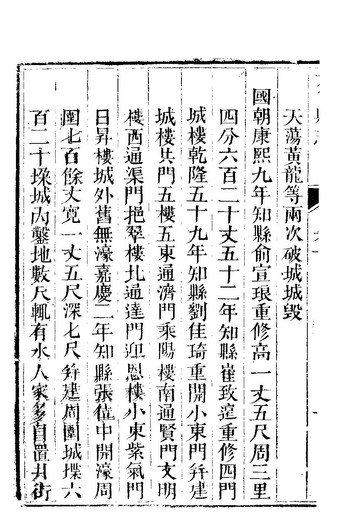 天蕩黃龍等兩次破城城毀
國朝康熙九年知縣俞宣琅重修高一丈五尺周三里
四分六百二十丈五十二年知縣崔致遠重修四門
城樓乾隆五十九年知縣劉佳琦重開小東門幷建
城樓共門五樓五東通濟門乘陽樓南通賢門文明
樓西通渠門挹翠樓北通達門迎恩樓小東紫氣門
日昇樓城外舊無濠嘉慶二年知縣張中開濠周
圍七百餘丈寬一丈五尺深七尺幷建周圍城堞六
百二十垜城內鑿地數尺輒有水人家多自置井街